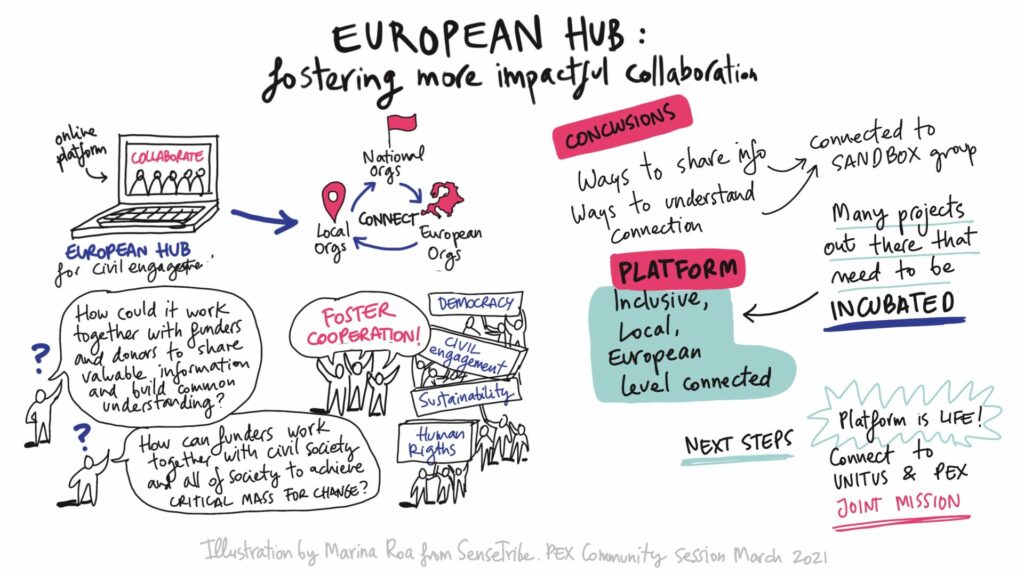 EUROPEAN HUB:
fostering more impactful collaboration
online
platform
COLLABORATE
EUROPEAN HUB
for civil engageme...
National
Orgs
Local
Orgs
CONNECT
European
Orgs
How could it work
together with funders
and donors to share
valuable information
and build common
understanding?
?
?
How can funders work
together with civil society
and all of society to achieve
CRITICAL MASS FOR CHANGE?
FOSTER
COOPERATION!
DEMOCRACY
CIVIL
engagement
Sustainability
Human
Rigths
CONCLUSIONS
Ways to share info
Ways to understand
connection
connected to
SANDBOX group
Many projects
out there that
need to be
INCUBATED
PLATFORM
Inclusive,
Local,
European
level connected
NEXT STEPS
Platform is LIFE!
Connect to
UNITUS & PEX
JOINT MISSION
Illustration by Marina Roa from SenseTribe. PEX Community session March 2021